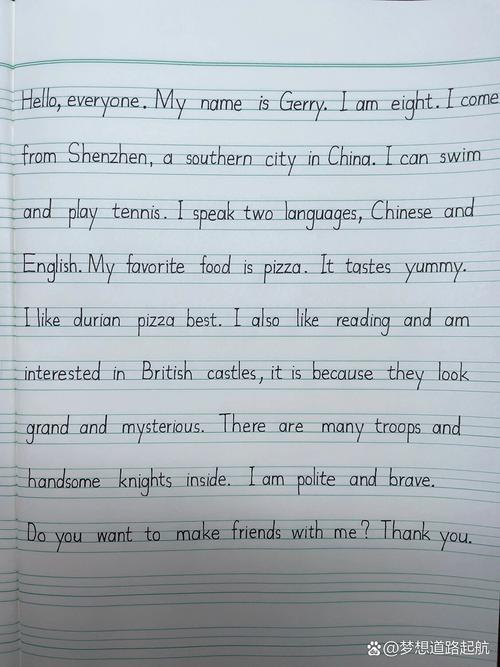 Hello, everyone. My name is Gerry. I am eight. I come
from Shenzhen, a southern city in China. I can swim
and play tennis. I speak two languages, Chinese and
English. My favorite food is pizza. It tastes yummy.
I like durian pizza best. I also like reading and am
interested in British castles, it is because they look
grand and mysterious. There are many troops and
handsome knights inside. I am polite and brave.
Do you want to make friends with me? Thank you.
@梦想道路起航